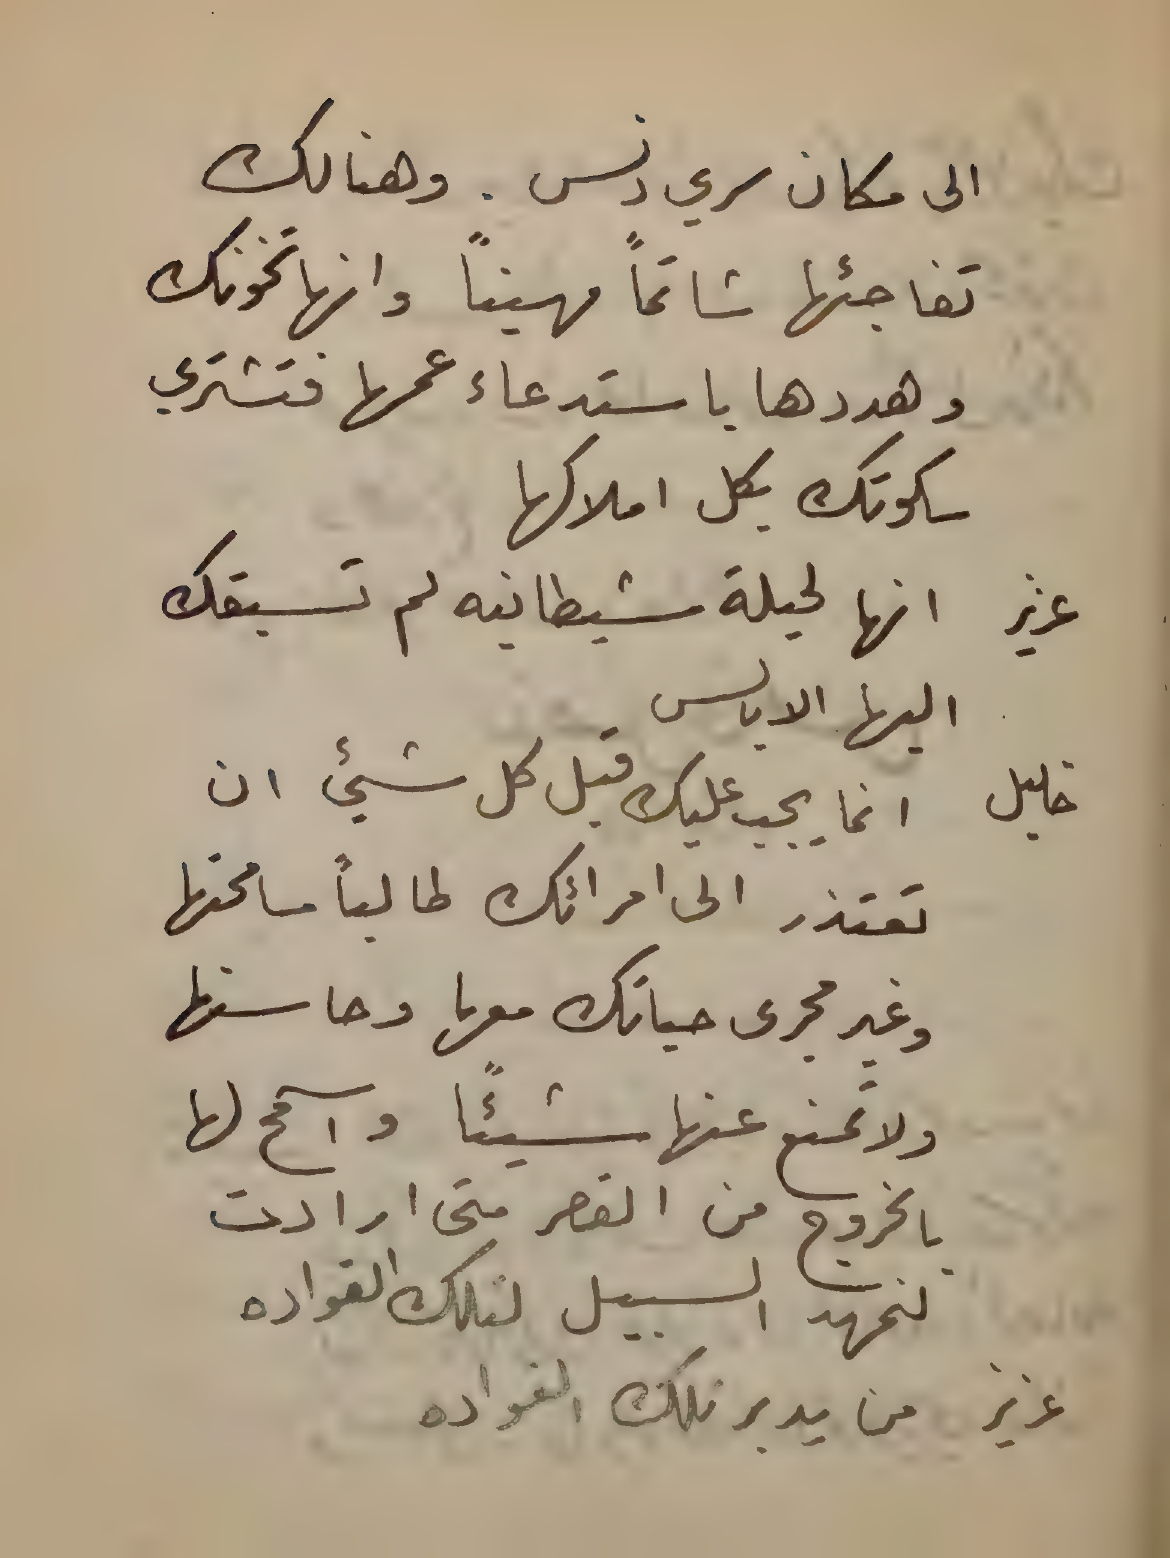 الى مكان سري دنس . وهنالك
تفاجئها شاتماً مهيناً وانها تخونك
وهددها باستدعاء عمها فتشتري
سكوتك بكل املاكها
عزيز انها لحيلة شيطانيه لم تسبقك
اليها الابالس
خليل انما يجب عليك قبل كل شيئ ان
تعتذر الى امرائتك طالباً مسامحتها
وغير مجرى حياتك معها وحاسنها
ولا تمنع عنها شيئًا واسمح لها
بالخروج من القصر متى ارادت
لنمهد السبيل لتلك القواده
عزيز من يدبر تلك القواده